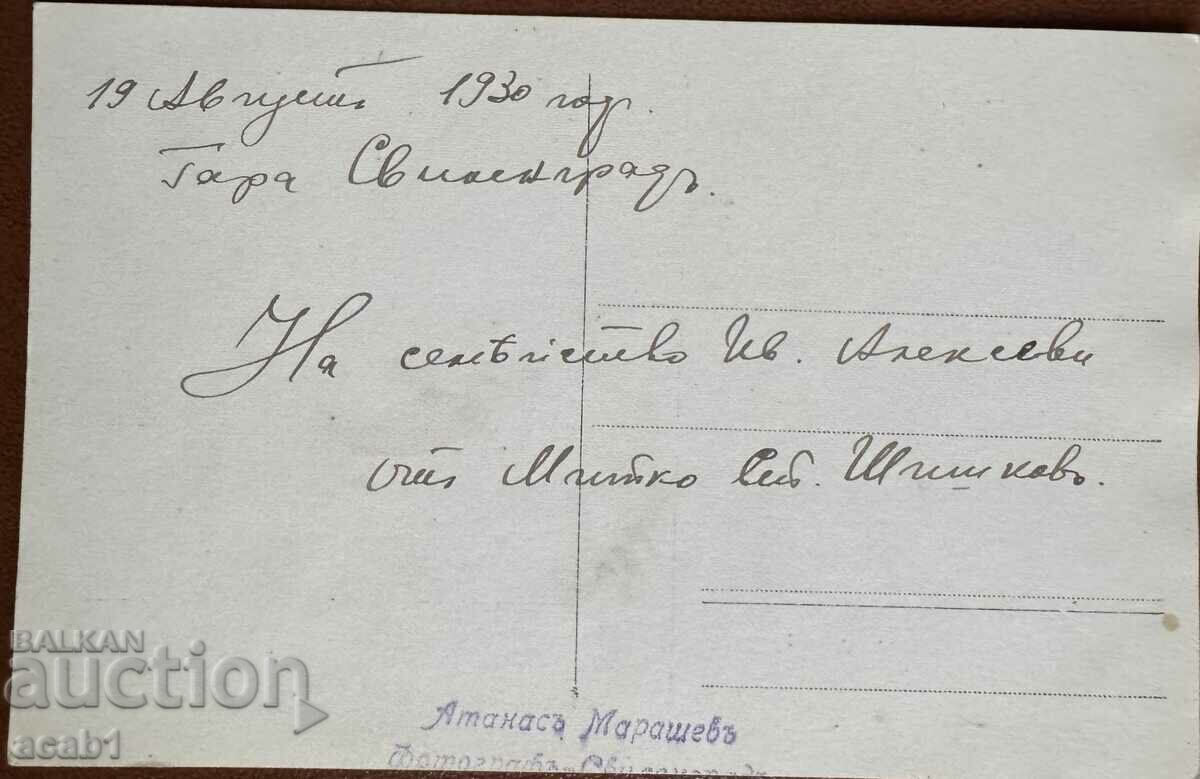 19 Августъ 1930 год.
Гара Свиленградъ.
На семѣйство Ив. Алексеви
отъ Митко Ст. Шишковъ.
Атанасъ Марашевъ
Фотографъ - Свиленградъ
BALKAN
auction
acab1